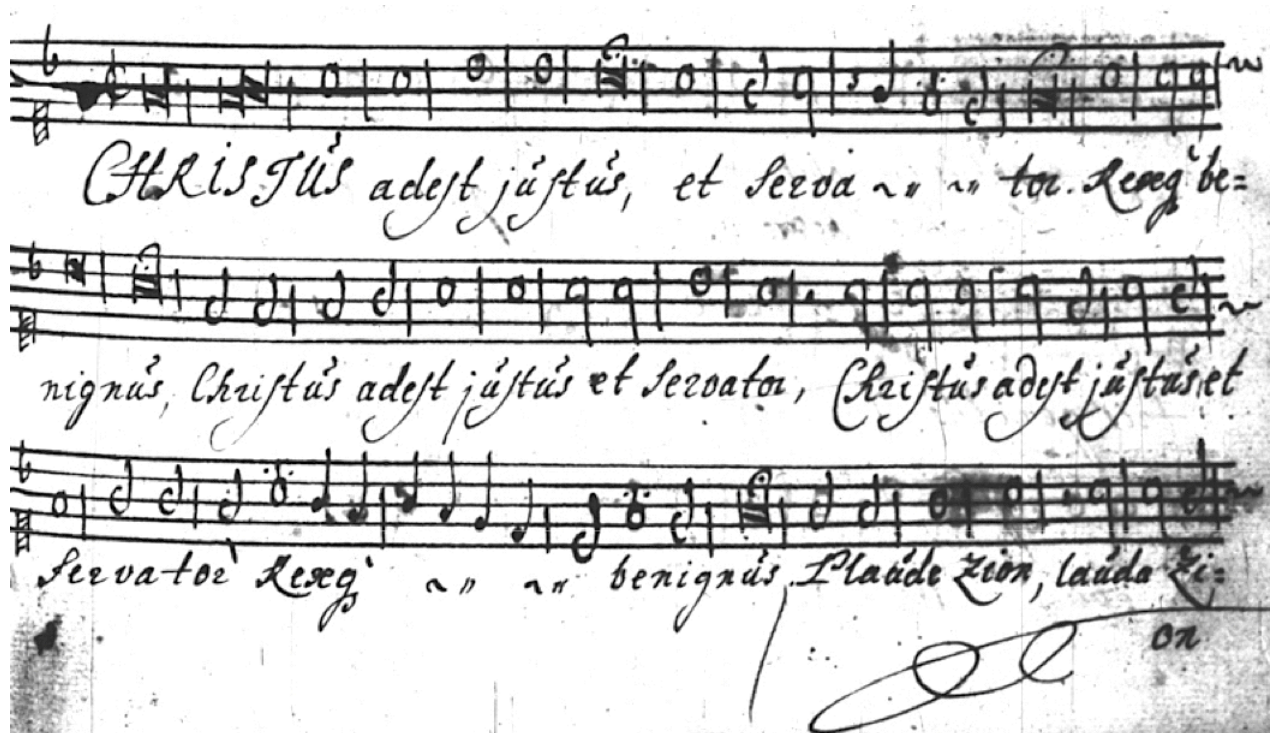 CHRISTUS adest justus, et serva ~ " ~ " tor. Rexq be=
nignus, Christus adest justus et servator, Christus adest justus et
servator Rexq ~ " ~ " benignus Plaude Zion, lauda Zi=
on